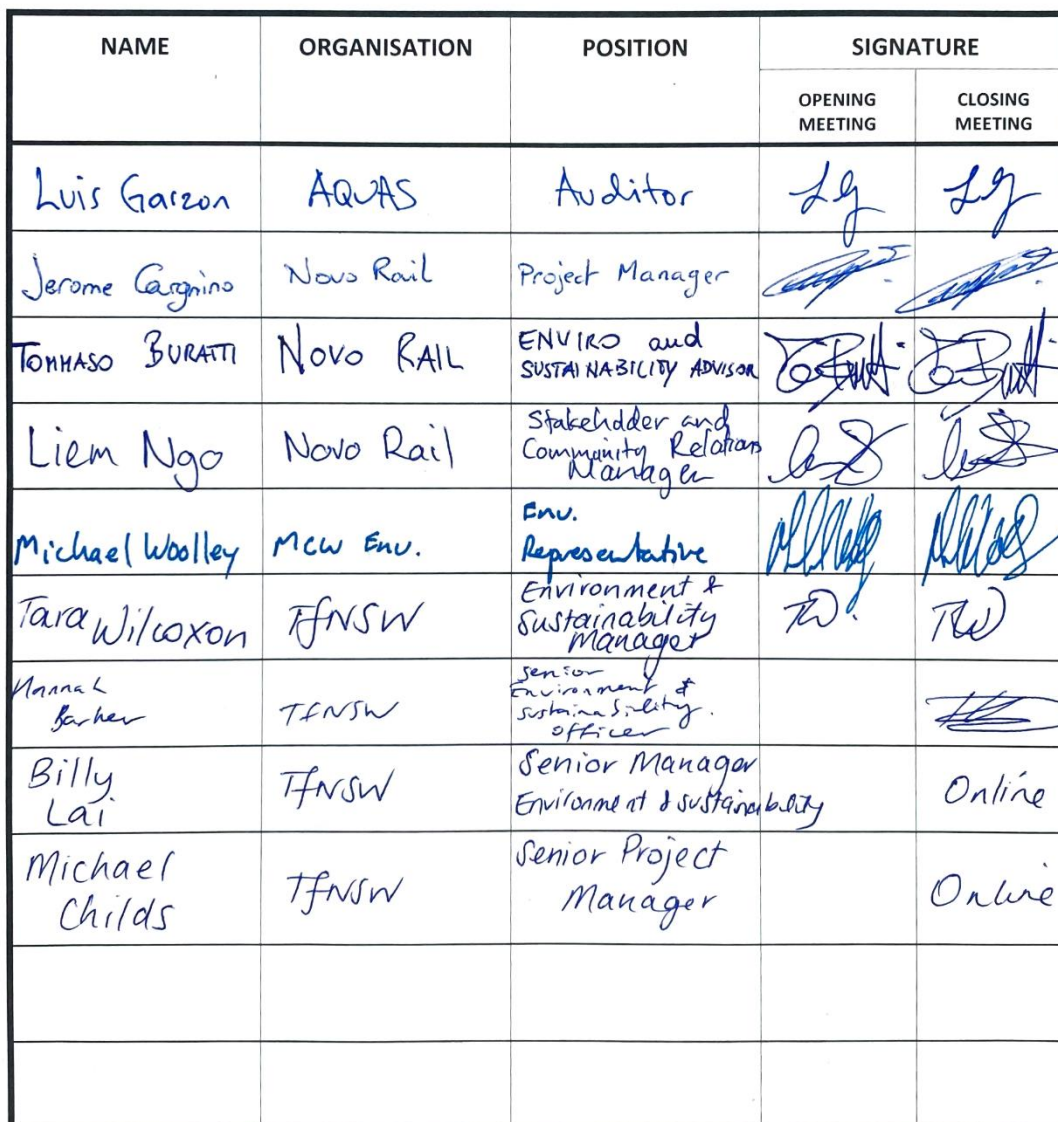 NAME ORGANISATION POSITION SIGNATURE
OPENING MEETING CLOSING MEETING
Luis Garzon AQUAS Auditor LG LG
Jerome Cargnino Novo Rail Project Manager
TOMMASO BURATTI NOVO RAIL ENVIRO and
SUSTAINABILITY ADVISOR
Liem Ngo Novo Rail Stakeholder and
Community Relations
Manager
Michael Woolley MCW Env. Env.
Representative
Tara Wilcoxon TfNSW Environment &
Sustainability
Manager TW. TW
Hannah
Barker TfNSW Senior
Environment &
Sustainability.
officer
Billy
Lai TfNSW Senior Manager
Environment & sustainability Online
Michael
Childs TfNSW Senior Project
Manager Online